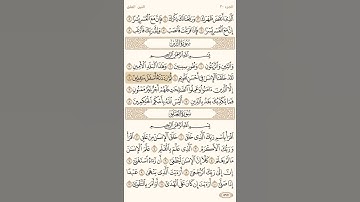 الجزء ٣٠
ٱلَّذِىٓ أَنقَضَ ظَهْرَكَ ٣ وَرَفَعْنَا لَكَ ذِكْرَكَ ٤ فَإِنَّ مَعَ ٱلْعُسْرِ يُسْرًا ٥
إِنَّ مَعَ ٱلْعُسْرِ يُسْرًا ٦ فَإِذَا فَرَغْتَ فَٱنصَبْ ٧ وَإِلَىٰ رَبِّكَ فَٱرْغَب ٨
سُورَةُ التِّينِ
بِسْمِ ٱللَّهِ ٱلرَّحْمَٰنِ ٱلرَّحِيمِ
وَٱلتِّينِ وَٱلزَّيْتُونِ ١ وَطُورِ سِينِينَ ٢ وَهَٰذَا ٱلْبَلَدِ ٱلْأَمِينِ ٣
لَقَدْ خَلَقْنَا ٱلْإِنسَٰنَ فِىٓ أَحْسَنِ تَقْوِيمٍ ٤ ثُمَّ رَدَدْنَٰهُ أَسْفَلَ سَٰفِلِينَ ٥
إِلَّا ٱلَّذِينَ ءَامَنُوا۟ وَعَمِلُوا۟ ٱلصَّٰلِحَٰتِ فَلَهُمْ أَجْرٌ غَيْرُ مَمْنُونٍ ٦
فَمَا يُكَذِّبُكَ بَعْدُ بِٱلدِّينِ ٧ أَلَيْسَ ٱللَّهُ بِأَحْكَمِ ٱلْحَٰكِمِينَ ٨
سُورَةُ العَلَقِ
بِسْمِ ٱللَّهِ ٱلرَّحْمَٰنِ ٱلرَّحِيمِ
ٱقْرَأْ بِٱسْمِ رَبِّكَ ٱلَّذِى خَلَقَ ١ خَلَقَ ٱلْإِنسَٰنَ مِنْ عَلَقٍ ٢ ٱقْرَأْ
وَرَبُّكَ ٱلْأَكْرَمُ ٣ ٱلَّذِى عَلَّمَ بِٱلْقَلَمِ ٤ عَلَّمَ ٱلْإِنسَٰنَ
مَا لَمْ يَعْلَمْ ٥ كَلَّآ إِنَّ ٱلْإِنسَٰنَ لَيَطْغَىٰٓ ٦ أَن رَّءَاهُ ٱسْتَغْنَىٰٓ ٧
إِنَّ إِلَىٰ رَبِّكَ ٱلرُّجْعَىٰٓ ٨ أَرَءَيْتَ ٱلَّذِى يَنْهَىٰ ٩ عَبْدًا
إِذَا صَلَّىٰٓ ١٠ أَرَءَيْتَ إِن كَانَ عَلَى ٱلْهُدَىٰٓ ١١ أَوْ أَمَرَ بِٱلتَّقْوَىٰٓ ١٢